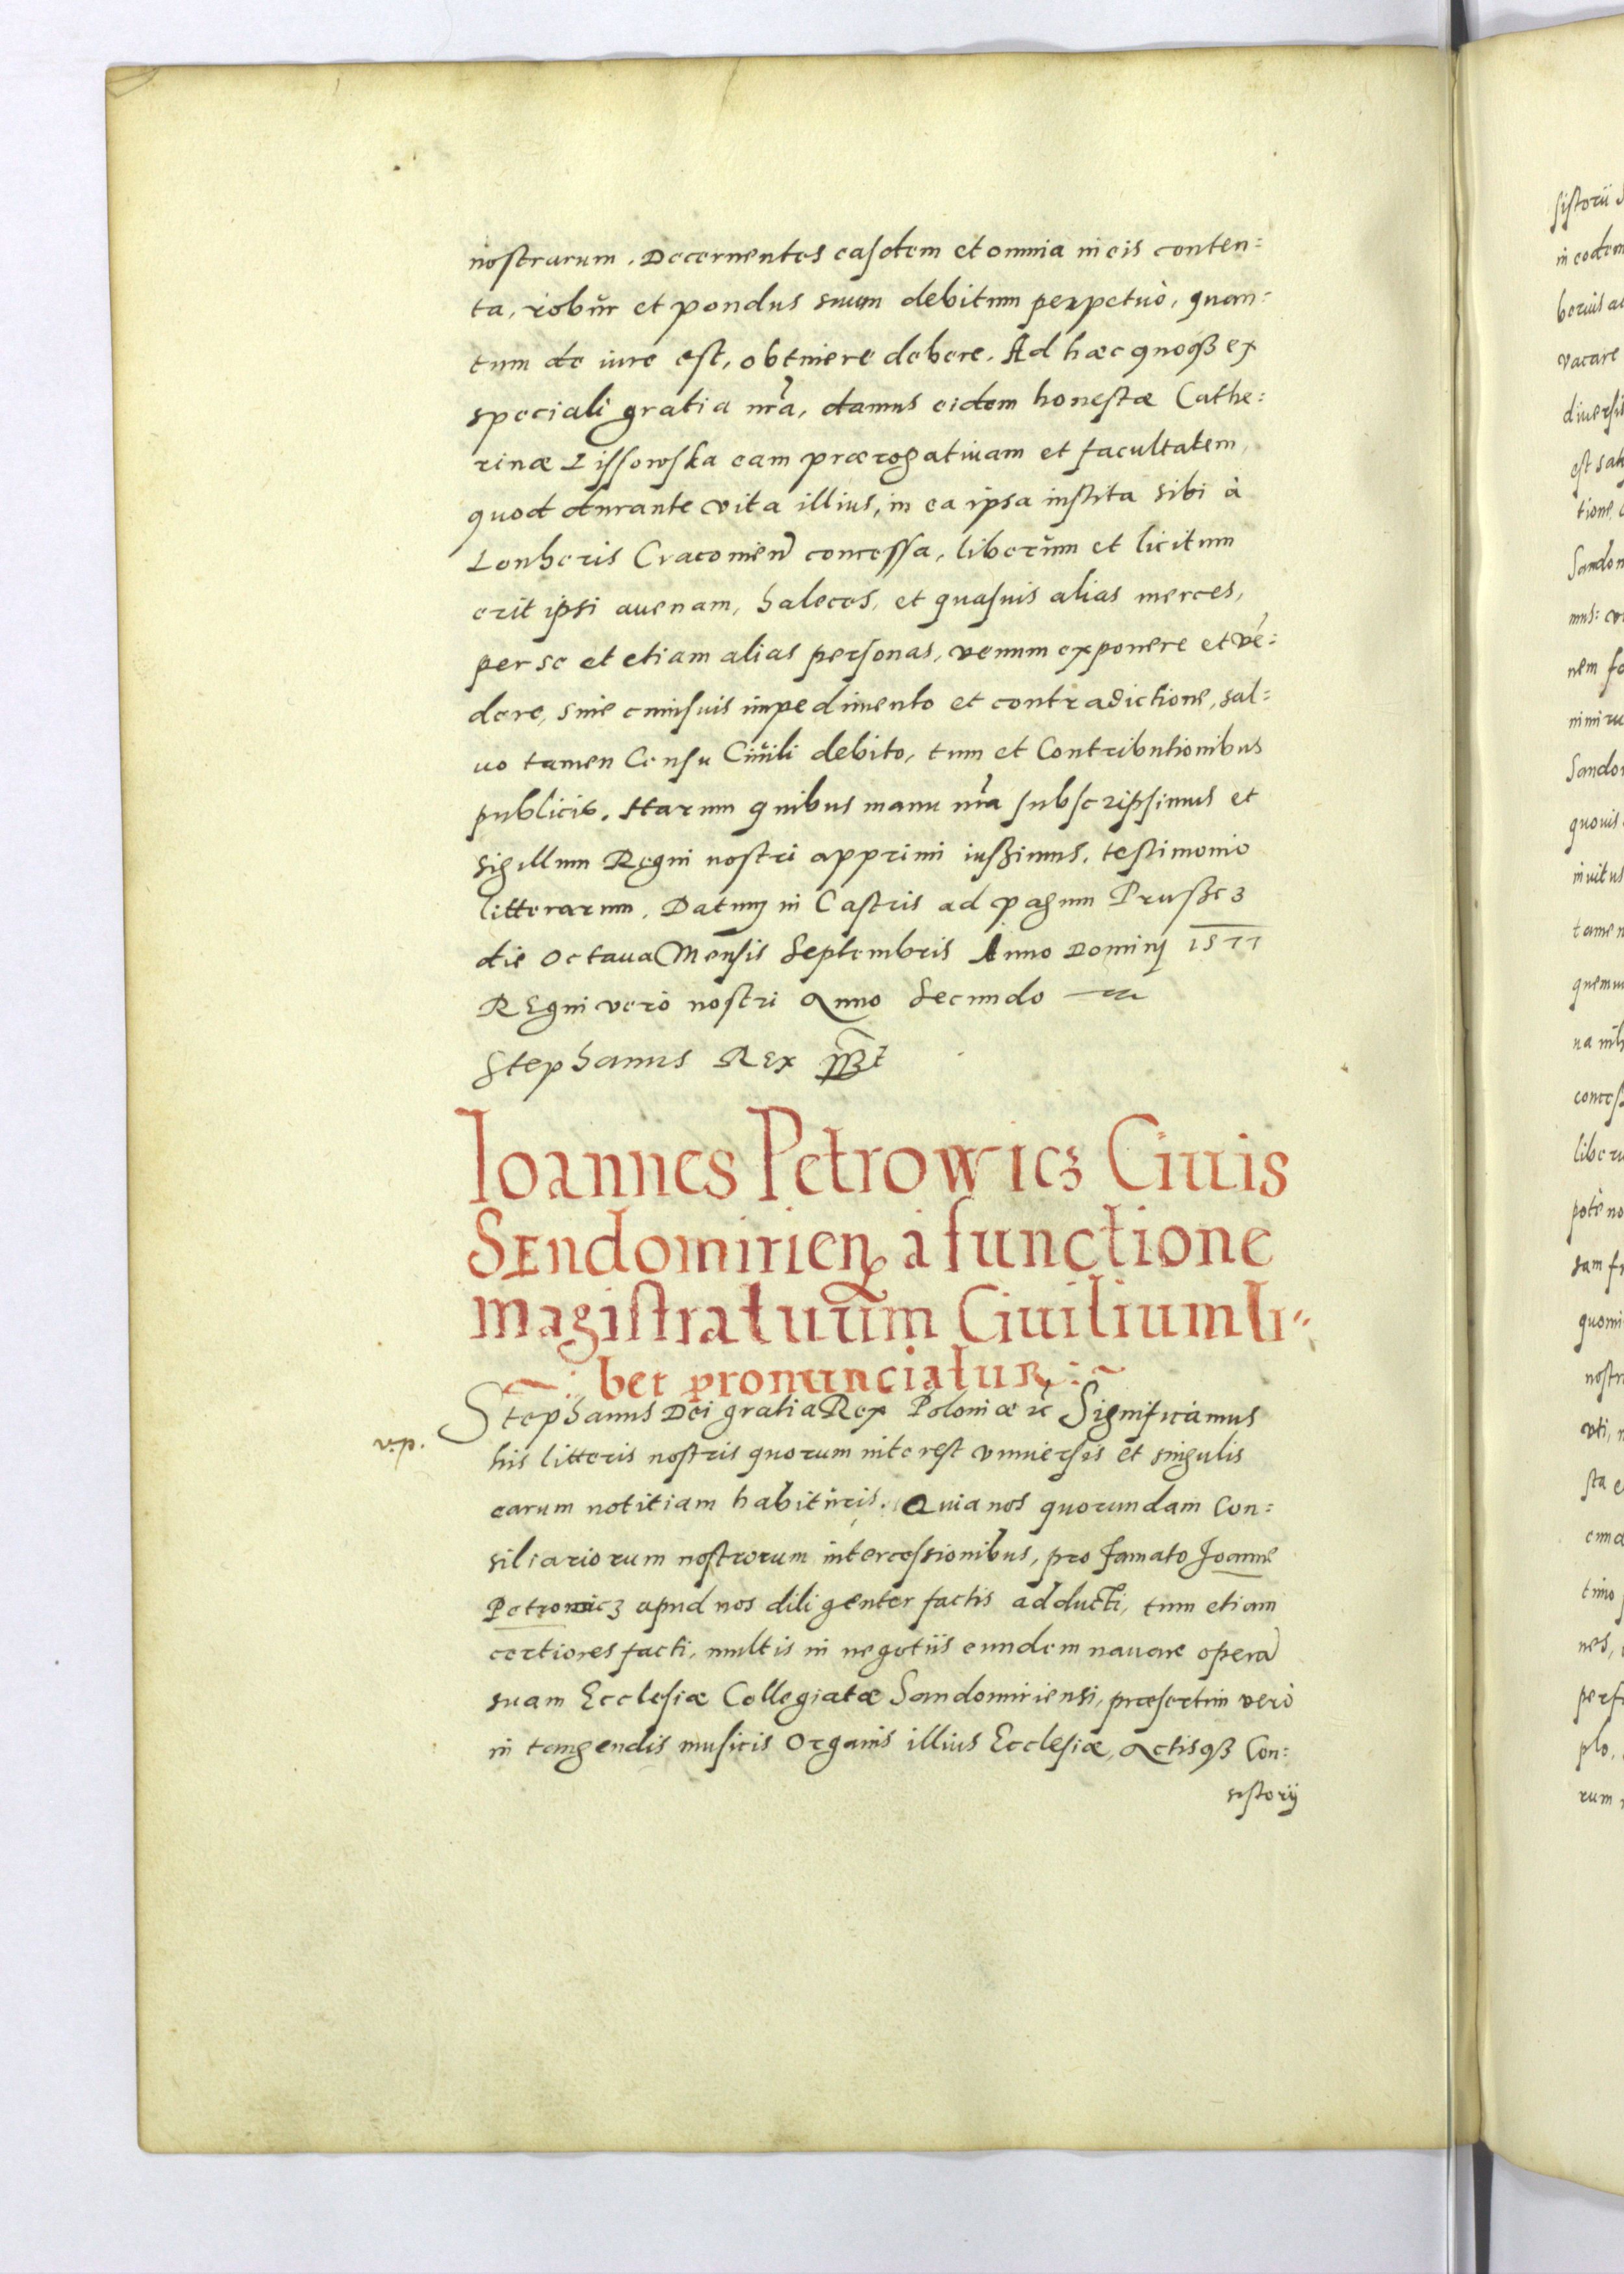 nostrarum. Decernentes easdem et omnia in eis conten:
ta, robur et pondus suum debitum perpetuò, quan:
tum de iure est, obtinere debere. Ad hæc quoqȝ ex
speciali gratia nr̃a, damus eidem honestæ Cathe:
rinæ Lissowska eam prærogatiuam et facultatem,
quod durante vita illius, in ea ipsa instita sibi à
Lonheris Cracouien̄ concessa, liberum et licitum
erit ipsi auenam, haleces, et quasuis alias merces,
per se et etiam alias personas, venum exponere et vē:
dere, sine cuiusuis impedimento et contradictione, sal:
uo tamen Censu Ciuili debito, tum et Contributionibus
publicis. Harum quibus manu nr̃a subscripsimus et
sigillum Regni nostri apprimi iussimus, testimonio
litterarum. Datum in Castris ad pagum Prusscz
die Octaua Mensis Septembris Anno Domini 1577
REgni verò nostri Anno Secundo
Stephanus Rex
Ioannes Petrowicz Ciuis
SEndomirien̄ à functione
magistratuum Ciuilium li"
ber pronunciatur
Stephanus Dei gratia Rex Poloniæ ec̃ Significamus
his litteris nostris quorum interest vniuersis et singulis
earum notitiam habituris. Quia nos quorundam Con:
siliariorum nostrorum intercessionibus, pro famato Joanne
Petrowicz apud nos diligenter factis adducti, tum etiam
certiores facti, multis in negotiis eundem nauare operā
suam Ecclesiæ Collegiatæ Sandomiriensi, præsertim verò
in tangendis musicis Organis illius Ecclesiæ, Actisqȝ Con:
sistorij
sistorii
in eodem
vacare